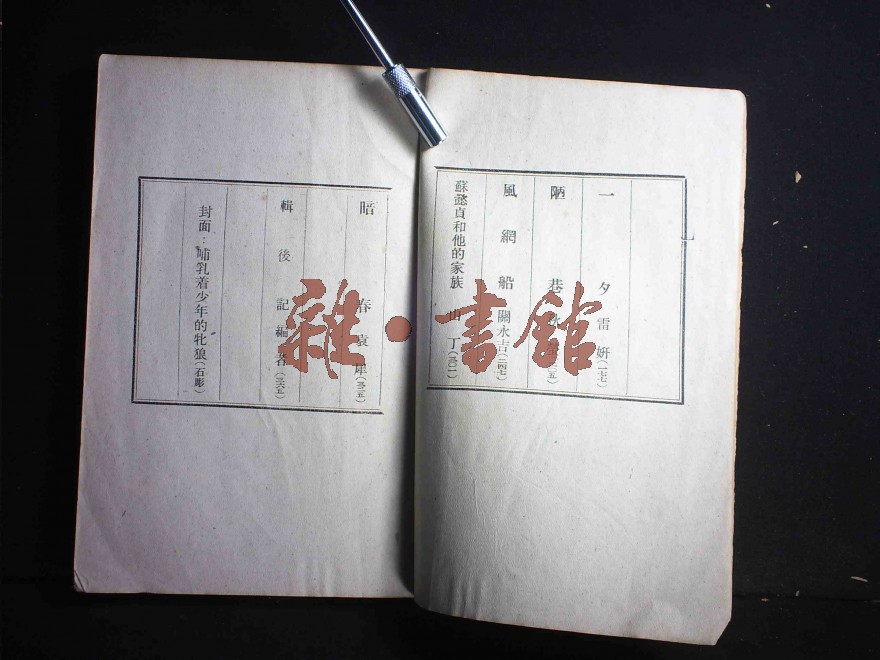 一夕 雷妍(一七七)
陋巷
風網船 關永吉(二四七)
蘇懿貞和他的家族 山丁(三〇一)
暗春 袁犀(三三五)
輯後記 編者(三六五)
封面：哺乳着少年的牝狼(石彫)
雜·書館